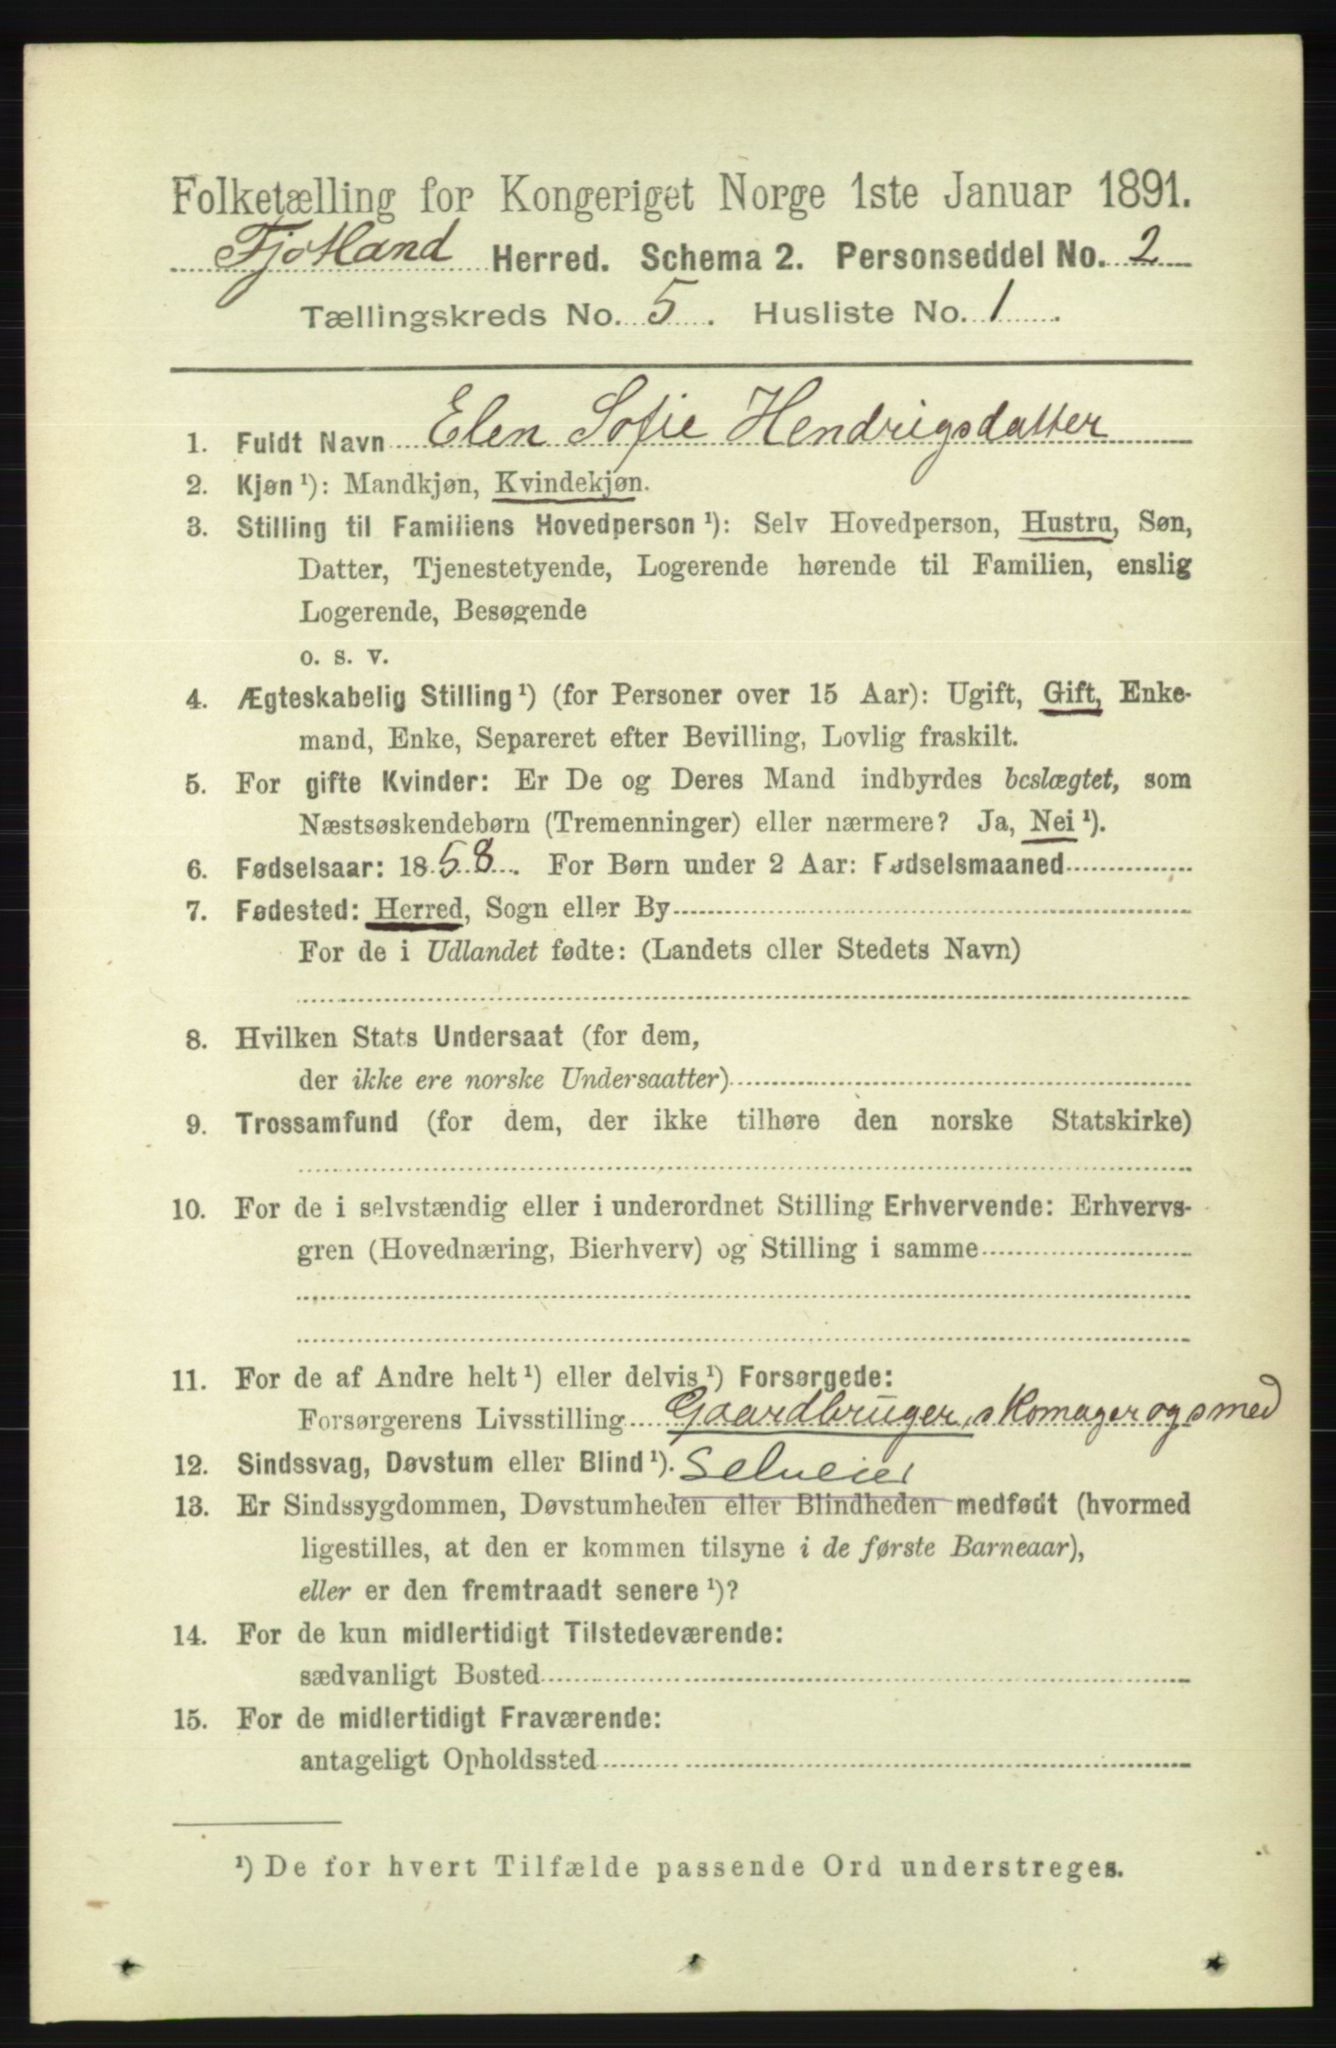 Folketælling for Kongeriget Norge 1ste Januar 1891.
Fjotland Herred. Schema 2. Personseddel No. 2
Tællingskreds No. 5. Husliste No. 1.
1. Fuldt Navn Elen Sofie Hendrigsdatter
2. Kjøn ¹): Mandkjøn, Kvindekjøn.
3. Stilling til Familiens Hovedperson ¹): Selv Hovedperson, Hustru, Søn,
Datter, Tjenestetyende, Logerende hørende til Familien, enslig
Logerende, Besøgende
o. s. v.
4. Ægteskabelig Stilling ¹) (for Personer over 15 Aar): Ugift, Gift, Enke-
mand, Enke, Separeret efter Bevilling, Lovlig fraskilt.
5. For gifte Kvinder: Er De og Deres Mand indbyrdes beslægtet, som
Næstsøskendebørn (Tremenninger) eller nærmere? Ja, Nei ¹).
6. Fødselsaar: 1858. For Børn under 2 Aar: Fødselsmaaned
7. Fødested: Herred, Sogn eller By
For de i Udlandet fødte: (Landets eller Stedets Navn)
8. Hvilken Stats Undersaat (for dem,
der ikke ere norske Undersaatter)
9. Trossamfund (for dem, der ikke tilhøre den norske Statskirke)
10. For de i selvstændig eller i underordnet Stilling Erhvervende: Erhvervs-
gren (Hovednæring, Bierhverv) og Stilling i samme
11. For de af Andre helt ¹) eller delvis ¹) Forsørgede:
Forsørgerens Livsstilling Gaardbruger, skomager og smed
12. Sindssvag, Døvstum eller Blind ¹). Selveier
13. Er Sindssygdommen, Døvstumheden eller Blindheden medfødt (hvormed
ligestilles, at den er kommen tilsyne i de første Barneaar),
eller er den fremtraadt senere ¹)?
14. For de kun midlertidigt Tilstedeværende:
sædvanligt Bosted
15. For de midlertidigt Fraværende:
antageligt Opholdssted
¹) De for hvert Tilfælde passende Ord understreges.